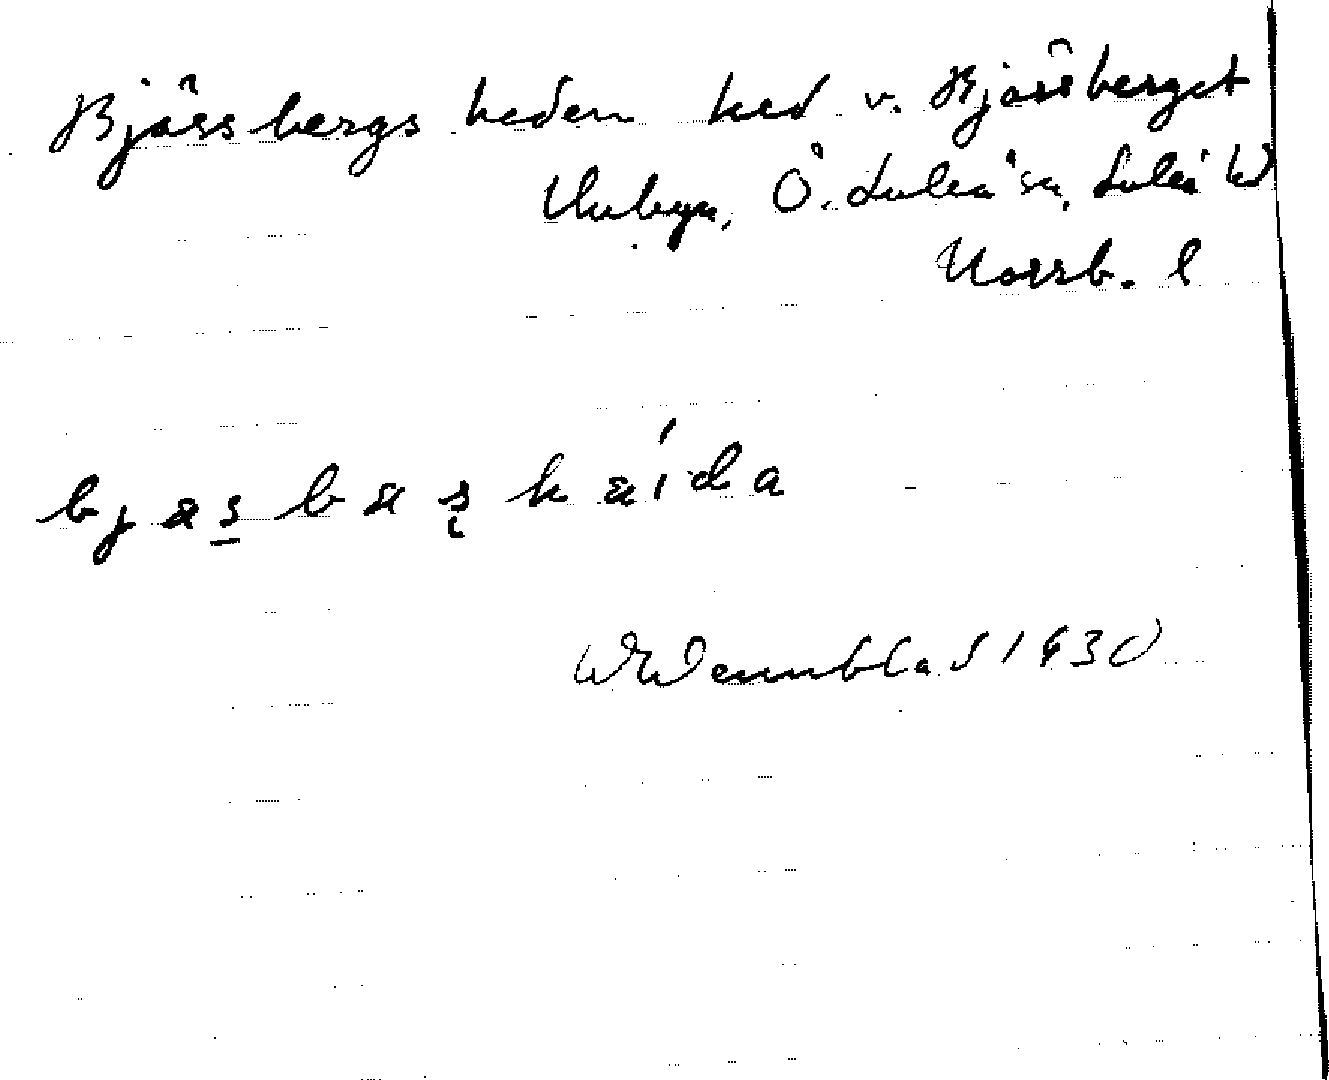 Bjässbergs heden hed v. Bjässberget
Unbyn, Ö. Luleå sn, Luleå
Norrb. l
bjäsbäṣ häída
Wennblad 1930